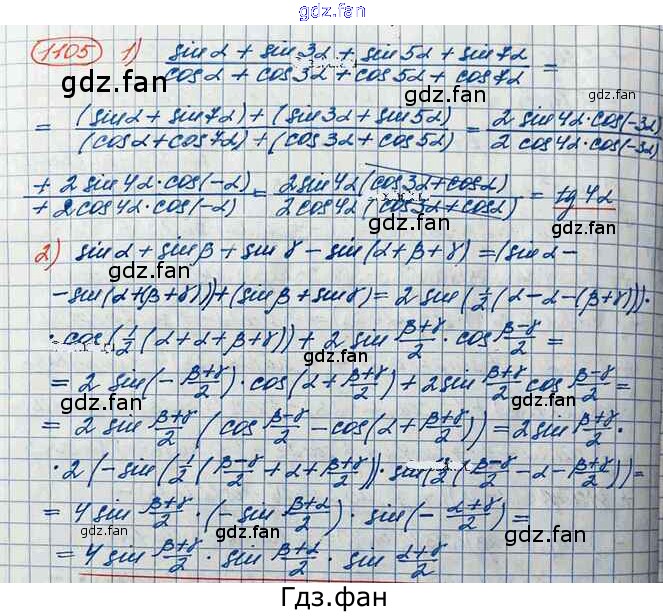 gdz.fan
1105 1) (sin α + sin 3α + sin 5α + sin 7α) / (cos α + cos 3α + cos 5α + cos 7α) =
gdz.fan gdz.fan
= ((sin α + sin 7α) + (sin 3α + sin 5α)) / ((cos α + cos 7α) + (cos 3α + cos 5α)) = 2 sin 4α · cos(-3α) / 2 cos 4α · cos(-3α)
gdz.fan gdz.fan
+ 2 sin 4α · cos(-α) / + 2 cos 4α · cos(-α) = 2 sin 4α (cos 3α + cos α) / 2 cos 4α (cos 3α + cos α) = tg 4α
gdz.fan
2) sin α + sin β + sin γ - sin(α + β + γ) = (sin α -
gdz.fan gdz.fan
- sin(α + (β + γ))) + (sin β + sin γ) = 2 sin (1/2 (α - α - (β + γ))) ·
· cos (1/2 (α + α + β + γ)) + 2 sin (β+γ)/2 · cos (β-γ)/2 =
gdz.fan
= 2 sin (- (β+γ)/2) · cos (α + (β+γ)/2) + 2 sin (β+γ)/2 cos (β-γ)/2 =
gdz.fan gdz.fan
= 2 sin (β+γ)/2 (cos (β-γ)/2 - cos (α + (β+γ)/2)) = 2 sin (β+γ)/2 ·
gdz.fan
· 2 (- sin (1/2 ((β-γ)/2 + α + (β+γ)/2)) · sin (1/2 ((β-γ)/2 - α - (β+γ)/2)) =
gdz.fan gdz.fan
= 4 sin (β+γ)/2 · (- sin (β+α)/2) · sin (- (α+γ)/2) =
gdz.fan
= 4 sin (β+γ)/2 · sin (β+α)/2 · sin (α+γ)/2
Гдз.фан